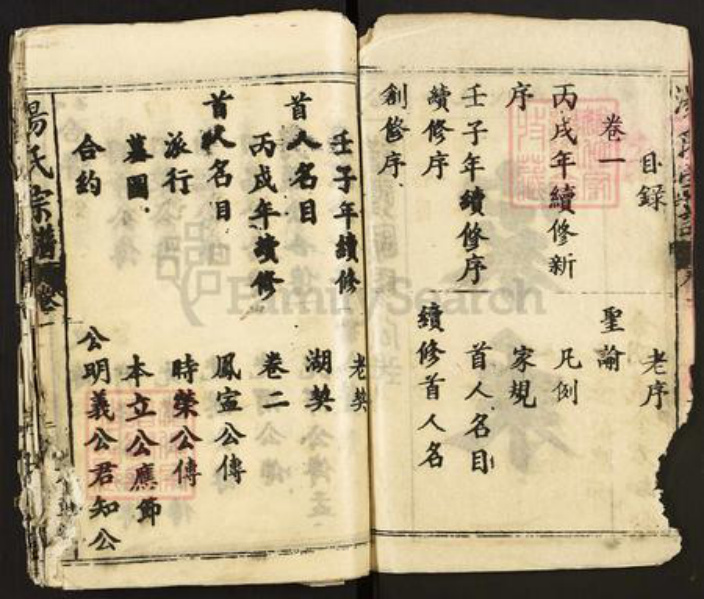 目録
老序
卷一
聖諭
丙戌年續修新
凡例
序
家規
壬子年續修序
首人名目
續修序
續修首人名
創修序
壬子年續修
老契
首人名目
湖契
丙戌年續修
卷二
首人名目
鳳寍公傳
派行
時榮公傳
墓圖
本立公應節
合約
公明義公君知公
楊氏宗譜
卷一
FamilySearch